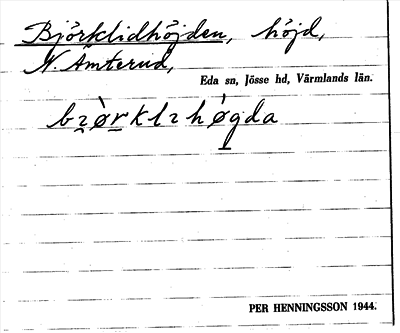 Björklidhöjden, höjd,
N. Ämterud,
Eda sn, Jösse hd, Värmlands län.
bzòrklzhǿgda
PER HENNINGSSON 1944.